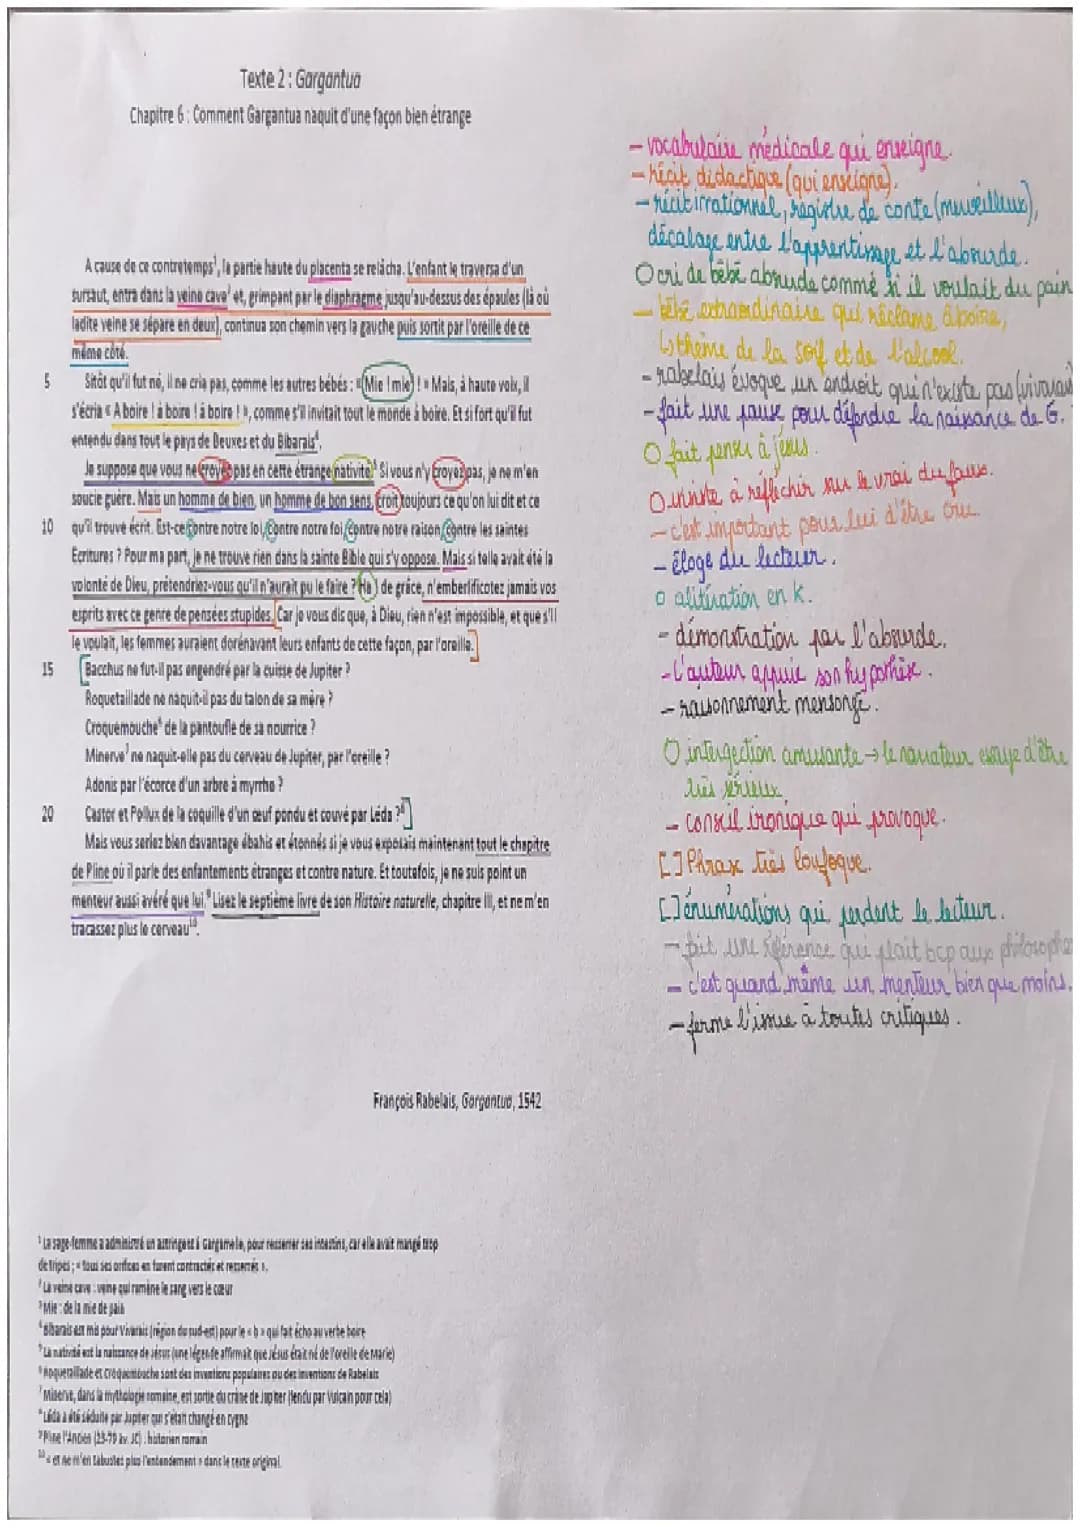 Texte 2 : Gargantua
Chapitre 6 : Comment Gargantua naquit d'une façon bien étrange
A cause de ce contretemps¹, la partie haute du placenta se relâcha. L'enfant le traversa d'un
sursaut, entra dans la veine cave² et, grimpant par le diaphragme jusqu'au-dessus des épaules (là où
ladite veine se sépare en deux), continua son chemin vers la gauche puis sortit par l'oreille de ce
même côté.
5 Sitôt qu'il fut né, il ne cria pas, comme les autres bébés : « Mie ! mie³ ! » Mais, à haute voix, il
s'écria « A boire ! à boire ! à boire ! », comme s'il invitait tout le monde à boire. Et si fort qu'il fut
entendu dans tout le pays de Beuxes et du Bibarais⁴.
Je suppose que vous ne croyez pas en cette étrange nativité⁵. Si vous n'y croyez pas, je ne m'en
soucie guère. Mais un homme de bien, un homme de bon sens, croit toujours ce qu'on lui dit et ce
10 qu'il trouve écrit. Est-ce contre notre loi, contre notre foi, contre notre raison, contre les saintes
Ecritures ? Pour ma part, je ne trouve rien dans la sainte Bible qui s'y oppose. Mais si telle avait été la
volonté de Dieu, prétendriez-vous qu'il n'aurait pu le faire ? Ha ! de grâce, n'emberlificotez jamais vos
esprits avec ce genre de pensées stupides. Car je vous dis que, à Dieu, rien n'est impossible, et que s'Il
le voulait, les femmes auraient dorénavant leurs enfants de cette façon, par l'oreille.
15 Bacchus ne fut-il pas engendré par la cuisse de Jupiter ?
Roquetaillade ne naquit-il pas du talon de sa mère ?
Croquemouche⁶ de la pantoufle de sa nourrice ?
Minerve⁷ ne naquit-elle pas du cerveau de Jupiter, par l'oreille ?
Adonis par l'écorce d'un arbre à myrrhe ?
20 Castor et Pollux de la coquille d'un œuf pondu et couvé par Léda ?⁸
Mais vous seriez bien davantage ébahis et étonnés si je vous exposais maintenant tout le chapitre
de Pline où il parle des enfantements étranges et contre nature. Et toutefois, je ne suis point un
menteur aussi avéré que lui.⁹ Lisez le septième livre de son Histoire naturelle, chapitre III, et ne m'en
tracassez plus le cerveau¹⁰.
François Rabelais, Gargantua, 1542
- vocabulaire médicale qui enseigne.
- récit didactique (qui enseigne).
- récit irrationnel, registre de conte (merveilleux),
décalage entre l'apprentissage et l'absurde.
O cri de bébé absurde comme si il voulait du pain
- bébé extraordinaire qui réclame à boire,
↳ thème de la soif et de l'alcool.
- rabelais évoque un endroit qui n'existe pas (vivarais
- fait une pause pour défendre la naissance de G.
O fait penser à jésus.
O insiste à réfléchir sur le vrai du faux.
- c'est important pour lui d'être cru.
- éloge du lecteur.
o alitération en k.
- démonstration par l'absurde.
- l'auteur appuie son hypothèse.
- raisonnement mensongé.
O intergection amusante → le narrateur essaye d'être
très sérieux.
- conseil ironique qui provoque.
[ ] Phrase très loufoque.
[ ] énumérations qui perdent le lecteur.
- fait une référence qui plait bcp aux philosophes
- c'est quand même un menteur bien que moins.
- ferme l'issue à toutes critiques.
¹ La sage-femme a administré un astringent à Gargamelle, pour resserrer ses intestins, car elle avait mangé trop
de tripes ; « tous ses orifices en furent contractés et resserrés ».
² La veine cave : veine qui ramène le sang vers le cœur
³ Mie : de la mie de pain
⁴ Bibarais est mis pour Vivarais (région du sud-est) pour le « b » qui fait écho au verbe boire
⁵ La nativité est la naissance de Jésus (une légende affirmait que Jésus était né de l'oreille de Marie)
⁶ Roquetaillade et Croquemouche sont des inventions populaires ou des inventions de Rabelais
⁷ Minerve, dans la mythologie romaine, est sortie du crâne de Jupiter (fendu par Vulcain pour cela)
⁸ Léda a été séduite par Jupiter qui s'était changé en cygne
⁹ Pline l'Ancien (23-79 av. JC) : historien romain
¹⁰ « et ne m'en tabustez plus l'entendement » dans le texte original.